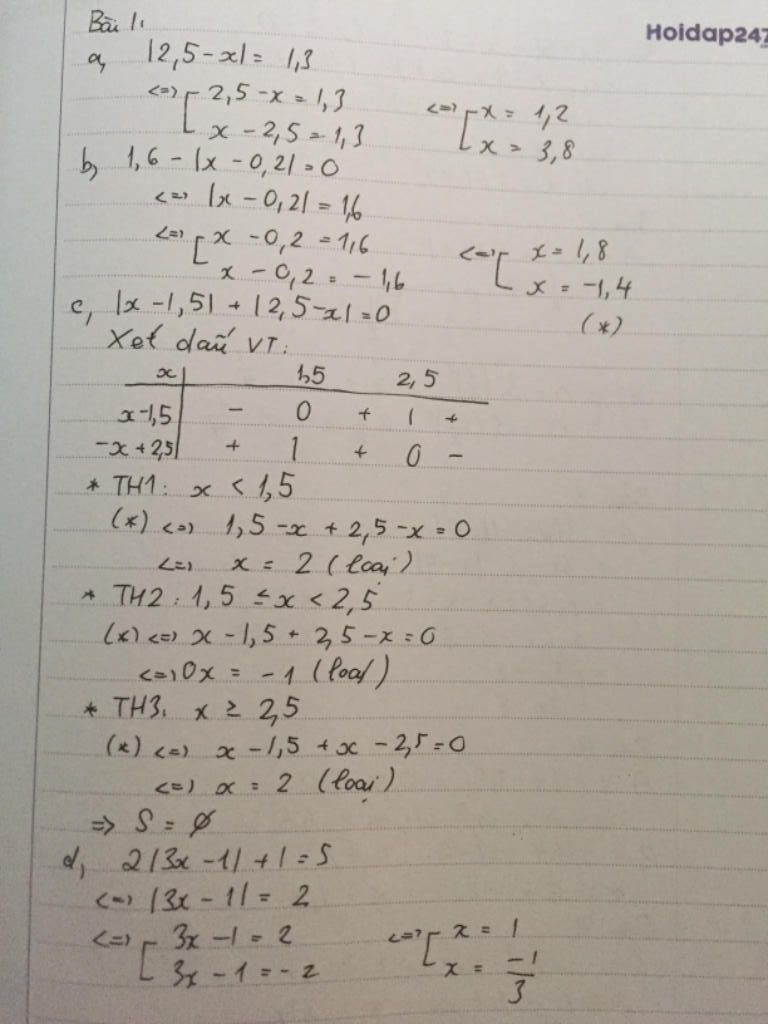 Bài 1:
Hoidap247
a, |2,5-x| = 1,3
<=> [ 2,5-x = 1,3 <=> [ x = 1,2
x - 2,5 = 1,3 x = 3,8
b, 1,6 - |x - 0,2| = 0
<=> |x - 0,2| = 1,6
<=> [ x - 0,2 = 1,6 <=> [ x = 1,8
x - 0,2 = -1,6 x = -1,4
c, |x - 1,5| + |2,5-x| = 0 (*)
Xét dấu VT:
x 1,5 2,5
x-1,5 - 0 + | +
-x+2,5 + | + 0 -
* TH1: x < 1,5
(*) <=> 1,5 - x + 2,5 - x = 0
<=> x = 2 (loại)
* TH2: 1,5 ≤ x < 2,5
(*) <=> x - 1,5 + 2,5 - x = 0
<=> 0x = -1 (loại)
* TH3: x ≥ 2,5
(*) <=> x - 1,5 + x - 2,5 = 0
<=> x = 2 (loại)
=> S = ∅
d, 2|3x - 1| + 1 = 5
<=> |3x - 1| = 2
<=> [ 3x - 1 = 2 <=> [ x = 1
3x - 1 = -2 x = -1/3